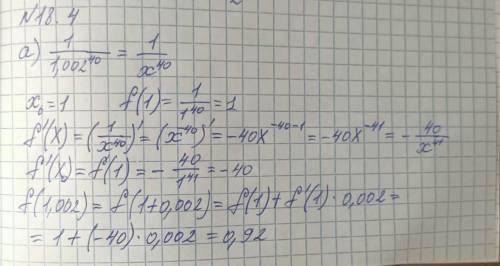 №18.4
а) 1/1,002⁴⁰ = 1/x⁴⁰
x₀=1 f(1)= 1/1⁴⁰ =1
f'(x)=(1/x⁴⁰)'=(x⁴⁰)'=-40x⁻⁴⁰⁻¹=-40x⁻⁴¹=-40/x⁴¹
f'(x₀)=f'(1)=-40/1⁴¹=-40
f(1,002)=f(1+0,002)=f(1)+f'(1)·0,002=
=1+(-40)·0,002=0,92